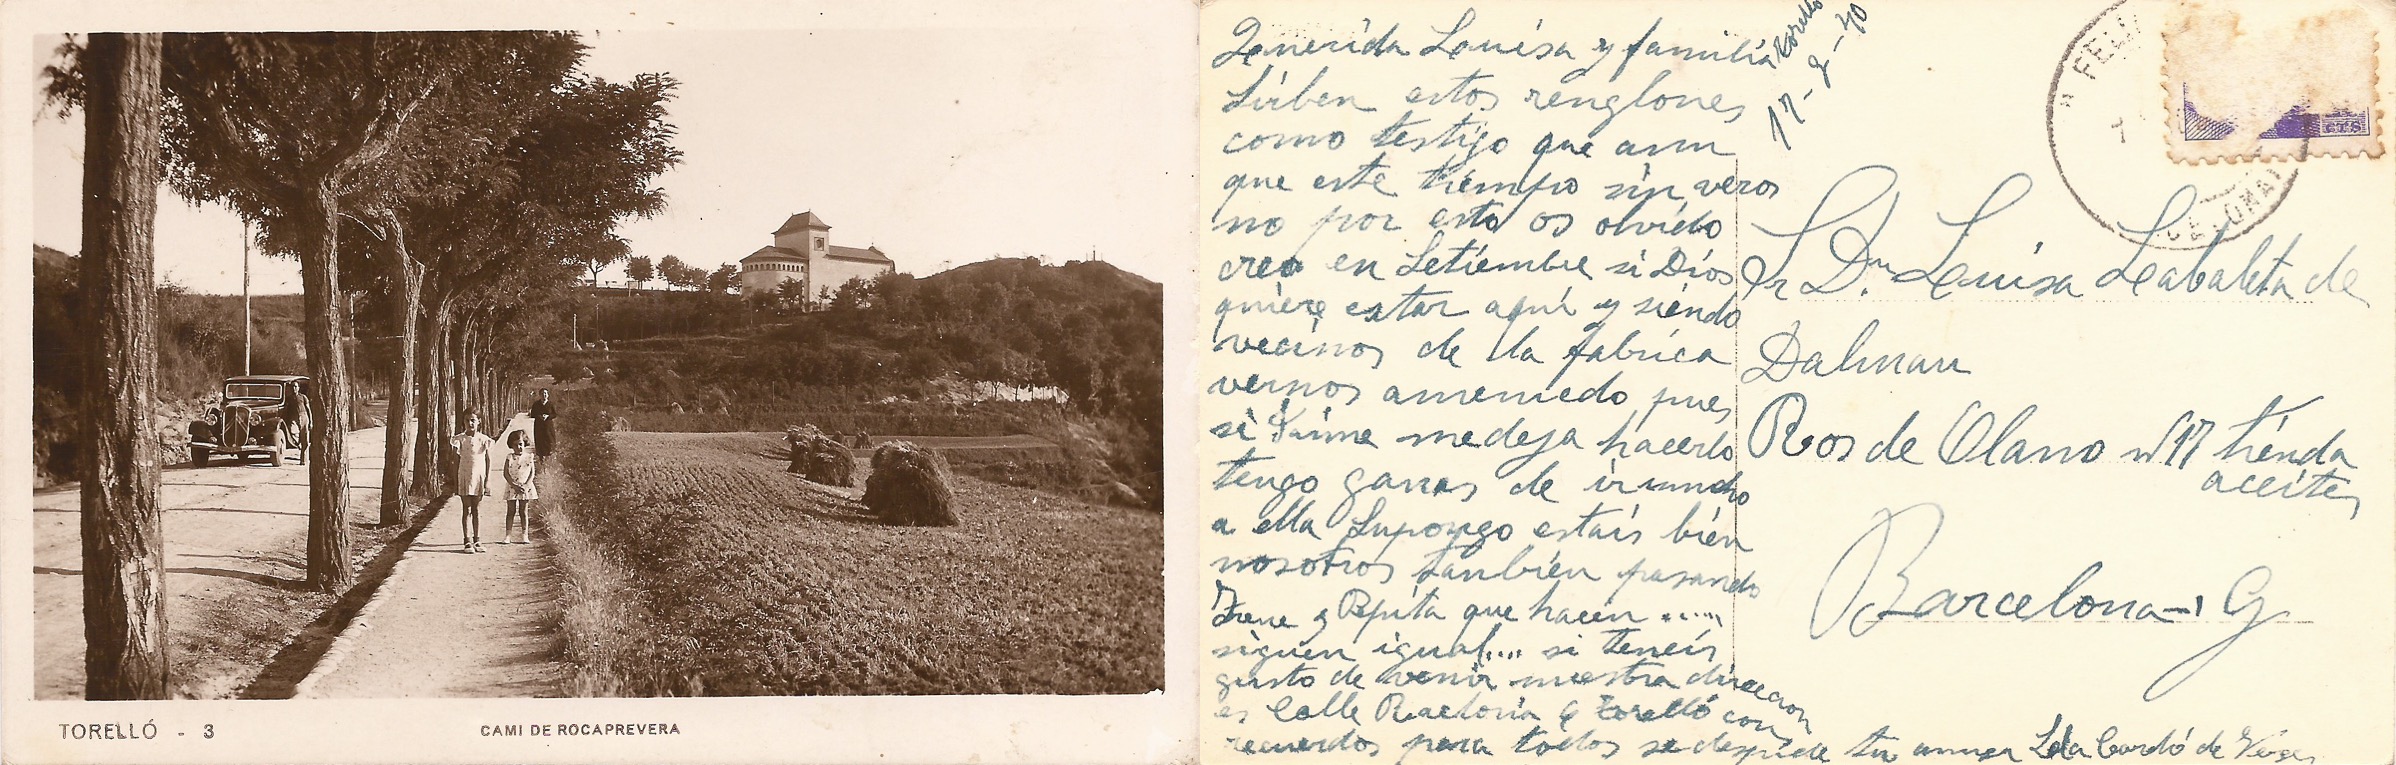 TORELLÓ - 3
CAMI DE ROCAPREVERA
Torelló
17-8-40
Querida Louisa y familia
Sirben estos renglones
como testigo que aun
que este tiempo sin veros
no por esto os olvido
creo en Setiembre si Dios
quiere estar aquí y siendo
vecinos de la fabrica
vernos amenudo pues
si Jaime me deja hacerlo
tengo ganas de ir
a ella Supongo estais bien
nosotros tanbién pasando
Irene y Pepita que hacen ......
siguen igual.... si teneis
gusto de venir nuestra direccion
es Calle Rectoria 6 Torelló con
recuerdos para todos se despide tu Lola Cardó de
CTS
Sr Dña Louisa Leabaleta de
Dalmau
Ros de Olano nº 17 tienda
aceites
Barcelona - G